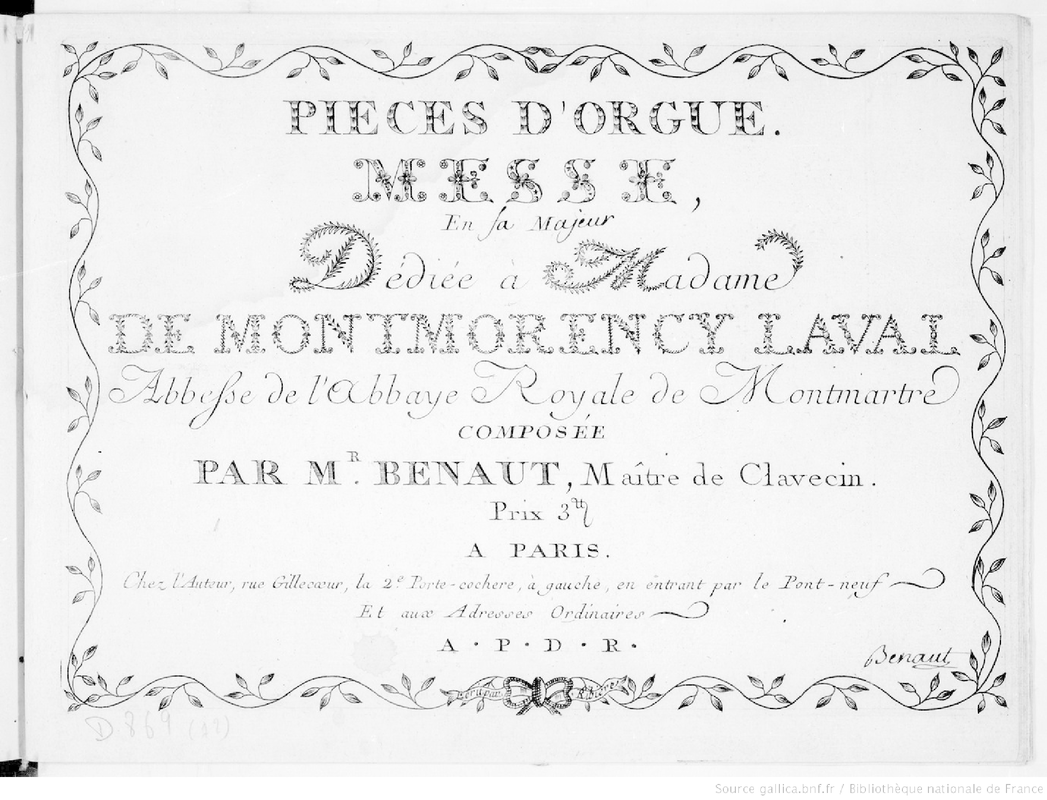 PIECES D'ORGUE.
MESSE,
En fa Majeur
Dédiée à Madame
DE MONTMORENCY LAVAL
Abbesse de l'Abbaye Royale de Montmartre
COMPOSÉE
PAR MR. BENAUT, Maître de Clavecin.
Prix 3tt
A PARIS.
Chez l'Auteur, rue Gillecœur, la 2e Porte-cochere, à gauche, en entrant par le Pont-neuf
Et aux Adresses Ordinaires
A.P.D.R.
Benaut
Ecrit par
D 869 (12)
Source gallica.bnf.fr / Bibliothèque nationale de France